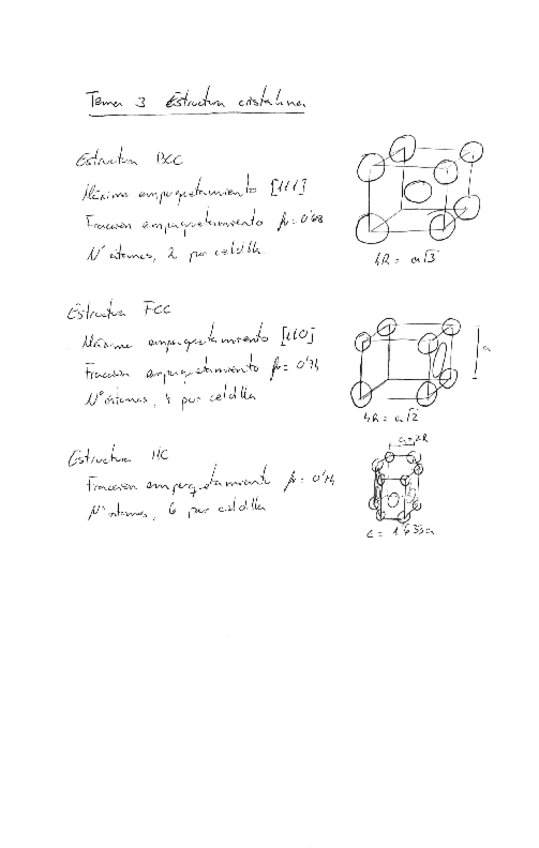 Tema 3 Estructura cristalina
Estructura BCC
Máximo empaquetamiento [111]
Fracción empaquetamiento fv = 0'68
Nº átomos, 2 por celdilla
4R = a√3
Estructura FCC
Máximo empaquetamiento [110]
Fracción empaquetamiento fv = 0'74
Nº átomos, 4 por celdilla
a
4R = a√2
Estructura HC
Fracción empaquetamiento fv = 0'74
Nº átomos, 6 por celdilla
a=2R
c = 1'633a